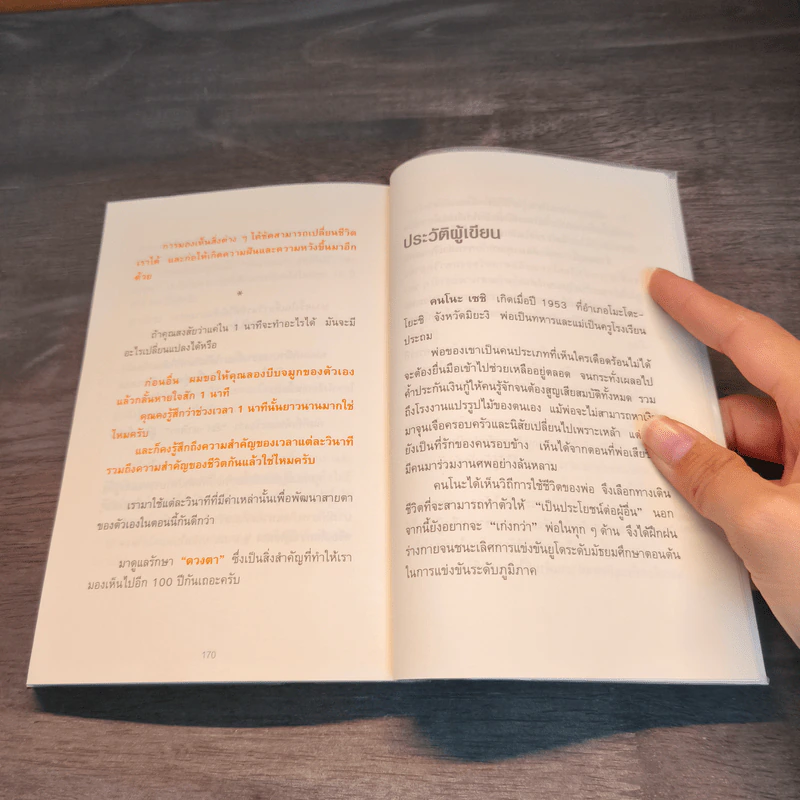 การมองเห็นสิ่งต่าง ๆ ได้ชัดสามารถเปลี่ยนชีวิต
เราได้ และก่อให้เกิดความฝันและความหวังขึ้นมาอีก
ด้วย
*
ถ้าคุณสงสัยว่าแค่ใน 1 นาทีจะทำอะไรได้ มันจะมี
อะไรเปลี่ยนแปลงได้หรือ
ก่อนอื่น ผมขอให้คุณลองบีบจมูกของตัวเอง
แล้วกลั้นหายใจสัก 1 นาที
คุณคงรู้สึกว่าช่วงเวลา 1 นาทีนั้นยาวนานมากใช่
ไหมครับ
และก็คงรู้สึกถึงความสำคัญของเวลาแต่ละวินาที
รวมถึงความสำคัญของชีวิตกันแล้วใช่ไหมครับ
เรามาใช้แต่ละวินาทีที่มีค่าเหล่านั้นเพื่อพัฒนาสายตา
ของตัวเองในตอนนี้กันดีกว่า
มาดูแลรักษา “ดวงตา” ซึ่งเป็นสิ่งสำคัญที่ทำให้เรา
มองเห็นไปอีก 100 ปีกันเถอะครับ
170
ประวัติผู้เขียน
คนโนะ เซชิ เกิดเมื่อปี 1953 ที่อำเภอโมะโตะ-
โยะชิ จังหวัดมิยะงิ พ่อเป็นทหารและแม่เป็นครูโรงเรียน
ประถม
พ่อของเขาเป็นคนประเภทที่เห็นใครเดือดร้อนไม่ได้
จะต้องยื่นมือเข้าไปช่วยเหลืออยู่ตลอด จนกระทั่งเผลอไป
ค้ำประกันเงินกู้ให้คนรู้จักจนต้องสูญเสียสมบัติทั้งหมด รวม
ถึงโรงงานแปรรูปไม้ของตนเอง แม้พ่อจะไม่สามารถหาเงิน
มาจุนเจือครอบครัวและนิสัยเปลี่ยนไปเพราะเหล้า แต่
ยังเป็นที่รักของคนรอบข้าง เห็นได้จากตอนที่พ่อเสีย
มีคนมาร่วมงานศพอย่างล้นหลาม
คนโนะได้เห็นวิถีการใช้ชีวิตของพ่อ จึงเลือกทางเดิน
ชีวิตที่จะสามารถทำตัวให้ “เป็นประโยชน์ต่อผู้อื่น” นอก
จากนี้ยังอยากจะ “เก่งกว่า” พ่อในทุก ๆ ด้าน จึงได้ฝึกฝน
ร่างกายจนชนะเลิศการแข่งขันยูโดระดับมัธยมศึกษาตอนต้น
ในการแข่งขันระดับภูมิภาค